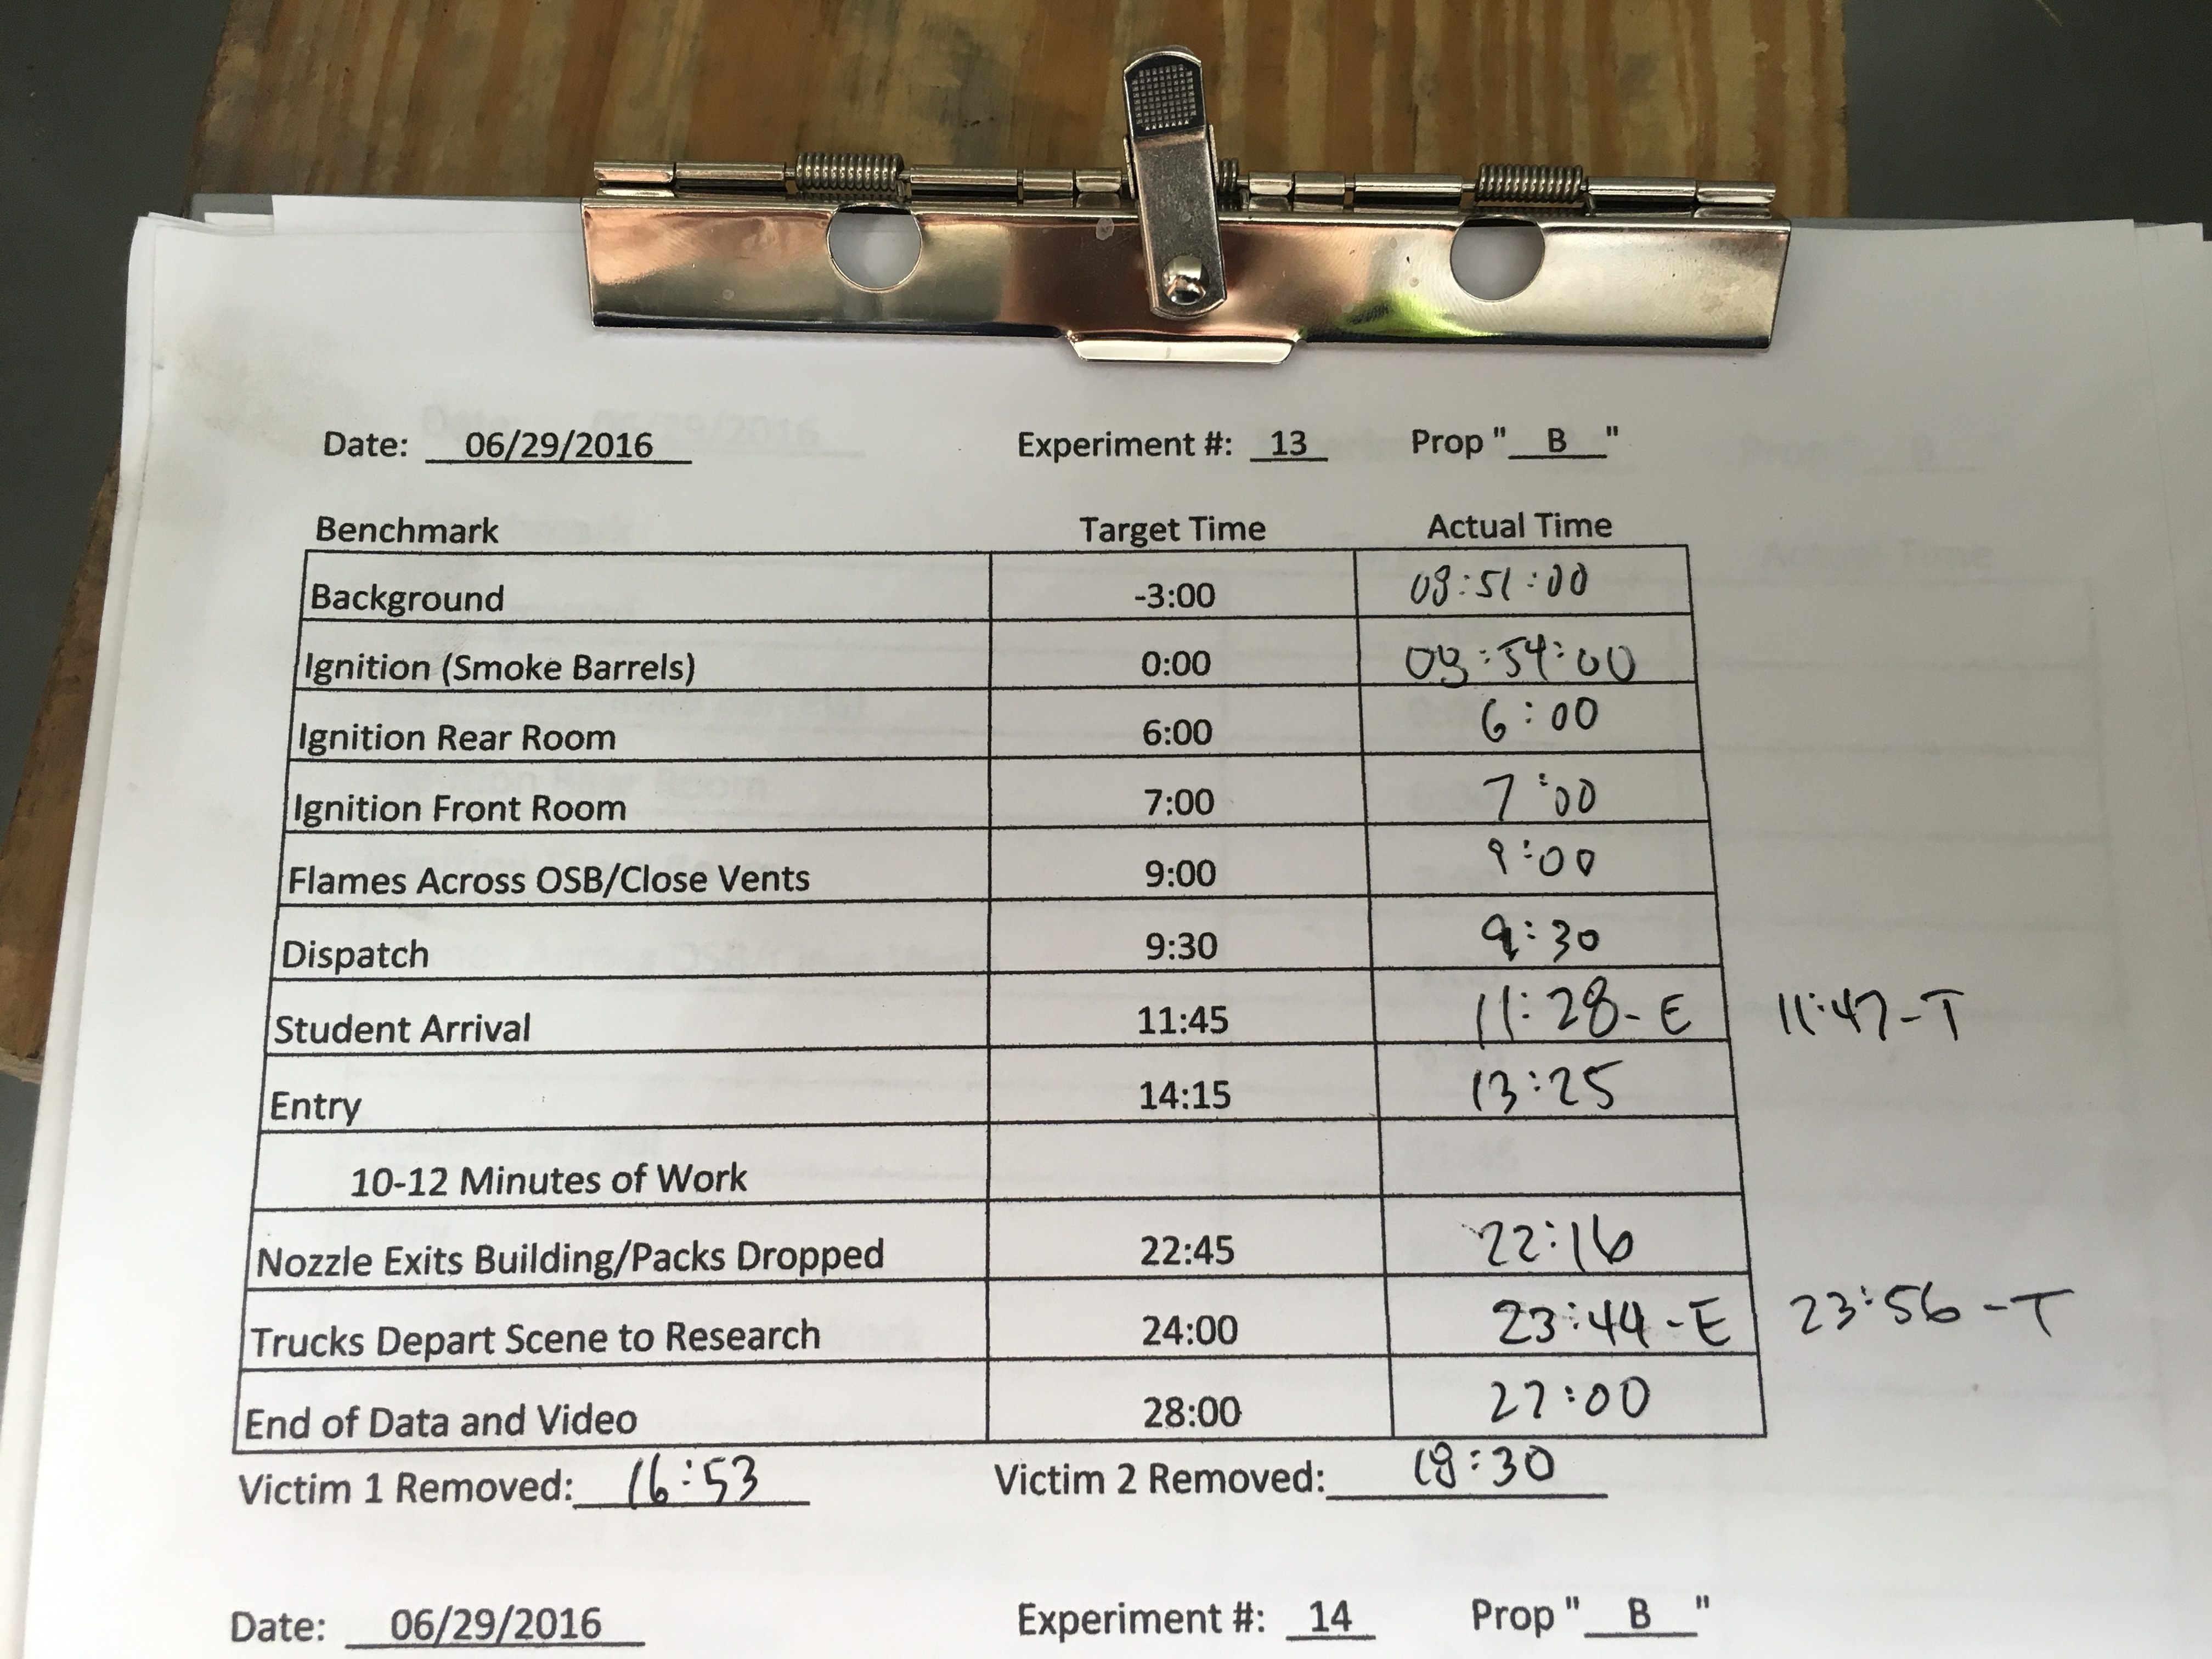 Date: 06/29/2016 Experiment #: 13 Prop " B "
Benchmark Target Time Actual Time
Background -3:00 08:51:00
Ignition (Smoke Barrels) 0:00 08:54:00
Ignition Rear Room 6:00 6:00
Ignition Front Room 7:00 7:00
Flames Across OSB/Close Vents 9:00 9:00
Dispatch 9:30 9:30
Student Arrival 11:45 11:28-E 11:47-T
Entry 14:15 13:25
10-12 Minutes of Work
Nozzle Exits Building/Packs Dropped 22:45 22:16
Trucks Depart Scene to Research 24:00 23:44-E 23:56-T
End of Data and Video 28:00 27:00
Victim 1 Removed: 16:53 Victim 2 Removed: 18:30
Date: 06/29/2016 Experiment #: 14 Prop " B "